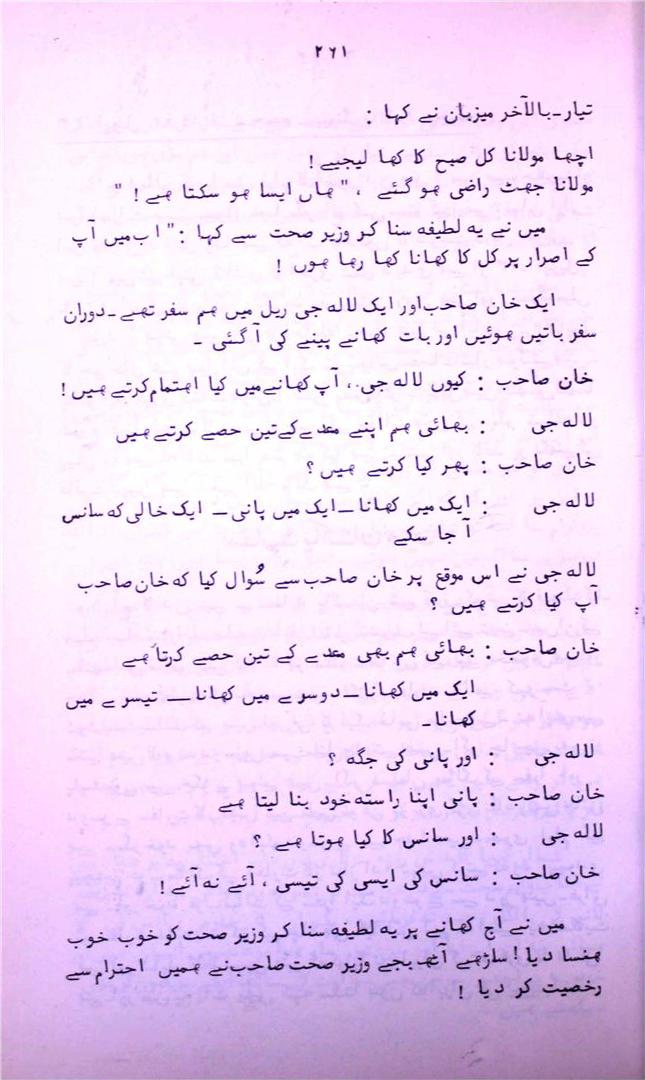 ۲۶۱
تیار۔بالآخر میزبان نے کہا :
اچھا مولانا کل صبح کا کھا لیجیے !
مولانا جھٹ راضی ہو گئے ، " ہاں ایسا ہو سکتا ہے ! "
میں نے یہ لطیفہ سنا کر وزیر صحت سے کہا : " اب میں آپ
کے اصرار پر کل کا کھانا کھا رہا ہوں !
ایک خان صاحب اور ایک لالہ جی ریل میں ہم سفر تھے۔دوران
سفر باتیں ہوئیں اور بات کھانے پینے کی آ گئی ۔
خان صاحب : کیوں لالہ جی ، آپ کھانے میں کیا اہتمام کرتے ہیں !
لالہ جی : بھائی ہم اپنے معدے کے تین حصے کرتے ہیں
خان صاحب : پھر کیا کرتے ہیں ؟
لالہ جی : ایک میں کھانا ــ ایک میں پانی ــ ایک خالی کہ سانس
آ جا سکے
لالہ جی نے اس موقع پر خان صاحب سے سُوال کیا کہ خان صاحب
آپ کیا کرتے ہیں ؟
خان صاحب : بھائی ہم بھی معدے کے تین حصے کرتا ہے
ایک میں کھانا ــ دوسرے میں کھانا ــ تیسرے میں
کھانا۔
لالہ جی : اور پانی کی جگہ ؟
خان صاحب : پانی اپنا راستہ خود بنا لیتا ہے
لالہ جی : اور سانس کا کیا ہوتا ہے ؟
خان صاحب : سانس کی ایسی کی تیسی ، آئے نہ آئے !
میں نے آج کھانے پر یہ لطیفہ سنا کر وزیر صحت کو خوب خوب
ہنسا دیا ! ساڑھے آٹھ بجے وزیر صحت صاحب نے ہمیں احترام سے
رخصت کر دیا !